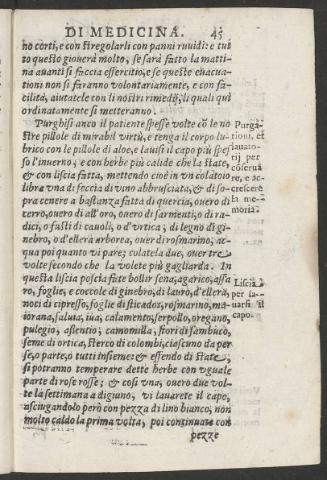 DI MEDICINA. 45
no corti, e con stregolarli con panni ruuidi: e tut
to questo giouerà molto, se sarà fatto la matti-
na auanti si faccia essercitio, e se queste euacua-
tioni non si faranno volontariamente, e con fa-
cilità, aiutatele con li nostri rimedij, li quali quì
ordinatamente si metteranno.
Purghisi anco il patiente spesse volte cõ le no
stre pillole di mirabil virtù, e tenga il corpo lu-
brico con le pillole di aloe, e lauisi il capo più spes
so l'inuerno, e con herbe più calide che la state,
& con liscia fatta, mettendo cioè in vn colatoio
libre vna di feccia di vino abbrusciata, & di so-
pra cenere a bastanza fatta di quercia, ouero di
cerro, ouero di all'oro, ouero di sarmenti, o di ra-
dici, o fusti di cauoli, o d'vrtica; di legno di gi-
nebro, o d'ellera arborea, ouer di rosmarino, ac-
qua poi quanto vi pare; colatela due, ouer tre
volte secondo che la volete più gagliarda. In
questa liscia poscia fate bollir sena, agarico, assa
ro, foglie, e coccole di ginebro, di lauro, d'ellera,
noci di cipresso, foglie di sticados, rosmarino, ma
iorana, saluia, iua, calamento, serpollo, oregano,
pulegio, assentio; camomilla, fiori di sambuco,
seme di ortica, sterco di colombi, ciascuno da per
se, o parte, o tutti insieme: & essendo di state,
si potranno temperare dette herbe con vguale
parte di rose rosse; & così vna, ouero due vol-
te la settimana a digiuno, vi lauarete il capo,
asciugandolo però con pezza di lino bianco, non
molto caldo la prima volta, poi continuate con
pezze
Purga-
tioni, et
lauato-
rij per
cõserua
re, e ac-
crescere
la me-
moria.
Liscia
per la-
uarsi il
capo.